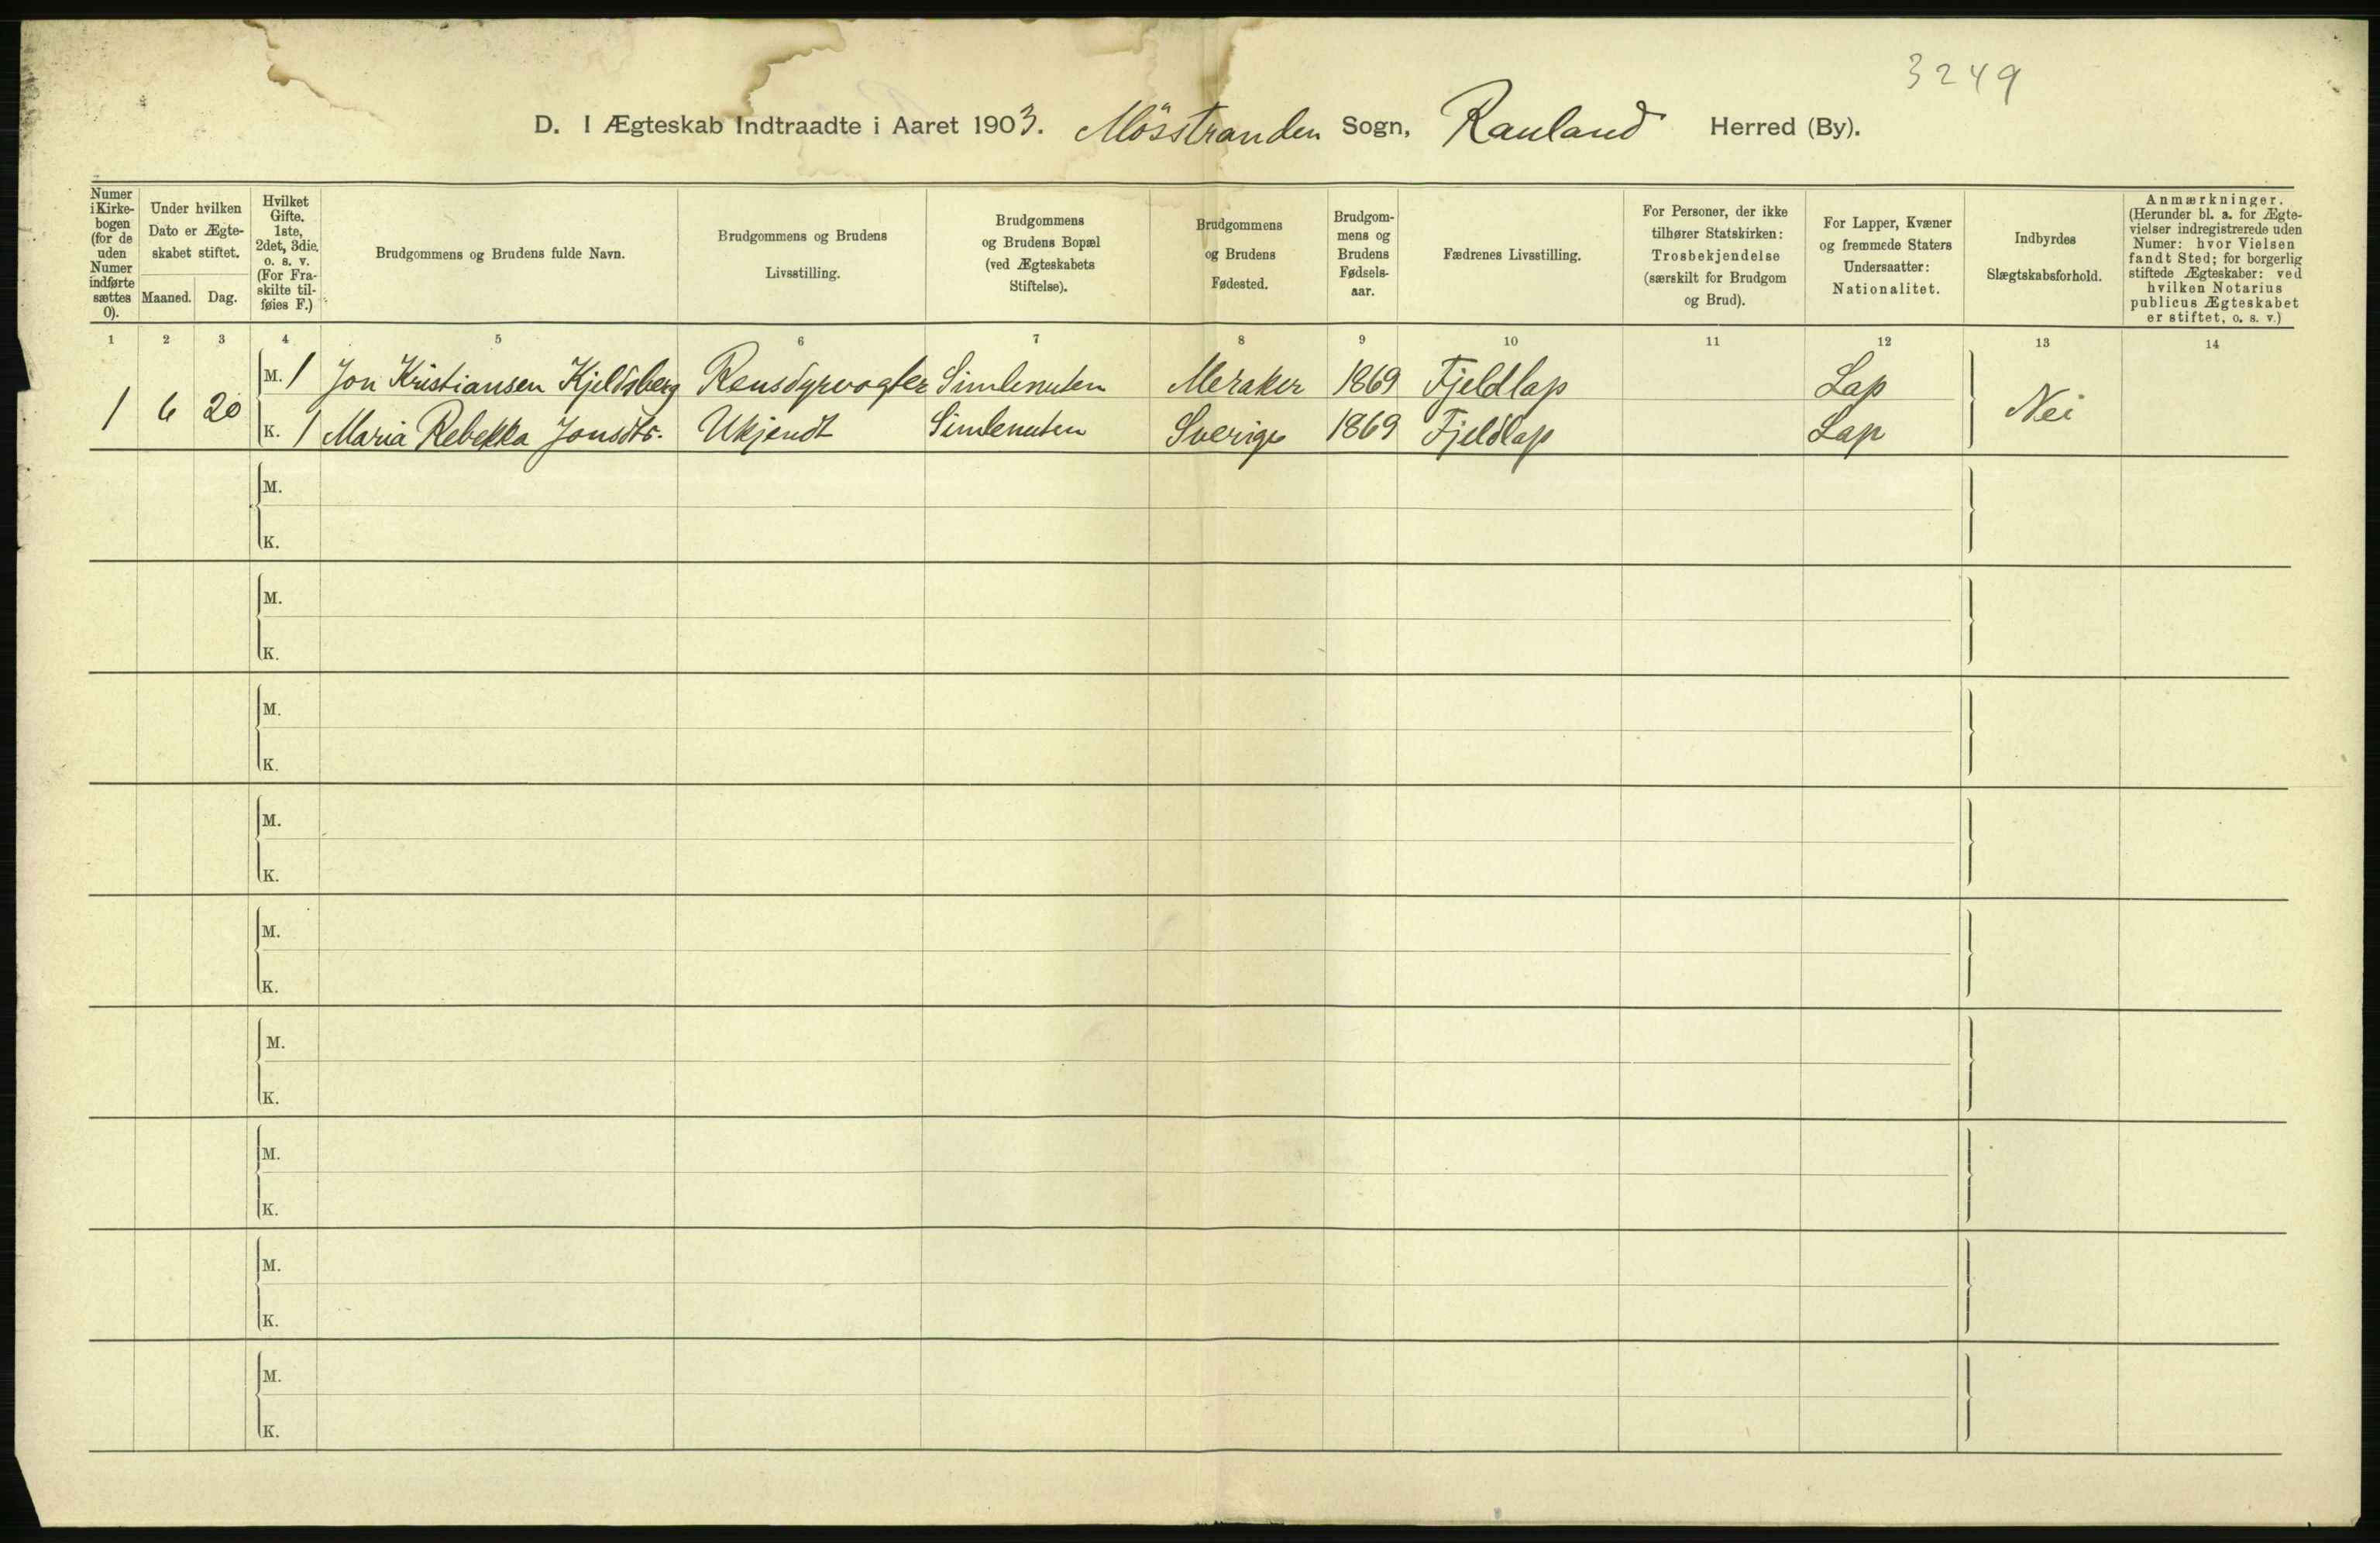 3249
D. I Ægteskab Indtraadte i Aaret 1903. Mösstranden Sogn, Rauland Herred (By).
Numer i Kirke-bogen (for de uden Numer indførte sættes 0).
Under hvilken Dato er Ægte-skabet stiftet.
Maaned. Dag.
Hvilket Gifte. 1ste, 2det, 3die, o. s. v. (For Fra-skilte til-føies F.)
Brudgommens og Brudens fulde Navn.
Brudgommens og Brudens Livsstilling.
Brudgommens og Brudens Bopæl (ved Ægteskabets Stiftelse).
Brudgommens og Brudens Fødested.
Brudgom-mens og Brudens Fødsels-aar.
Fædrenes Livsstilling.
For Personer, der ikke tilhører Statskirken: Trosbekjendelse (særskilt for Brudgom og Brud).
For Lapper, Kvæner og fremmede Staters Undersaatter: Nationalitet.
Indbyrdes Slægtskabsforhold.
Anmærkninger. (Herunder bl. a. for Ægte-vielser indregistrerede uden Numer: hvor Vielsen fandt Sted; for borgerlig stiftede Ægteskaber: ved hvilken Notarius publicus Ægteskabet er stiftet, o. s. v.)
1 2 3 4 5 6 7 8 9 10 11 12 13 14
M. 1 Jon Kristiansen Kjeldsberg Rensdyrvogter Simlenuten Meraker 1869 Fjeldlap Lap
1 6 20 Nei
K. 1 Maria Rebekka Jonsdtr. Ukjendt Simlenuten Sverige 1869 Fjeldlap Lap
M.
K.
M.
K.
M.
K.
M.
K.
M.
K.
M.
K.
M.
K.
M.
K.
M.
K.